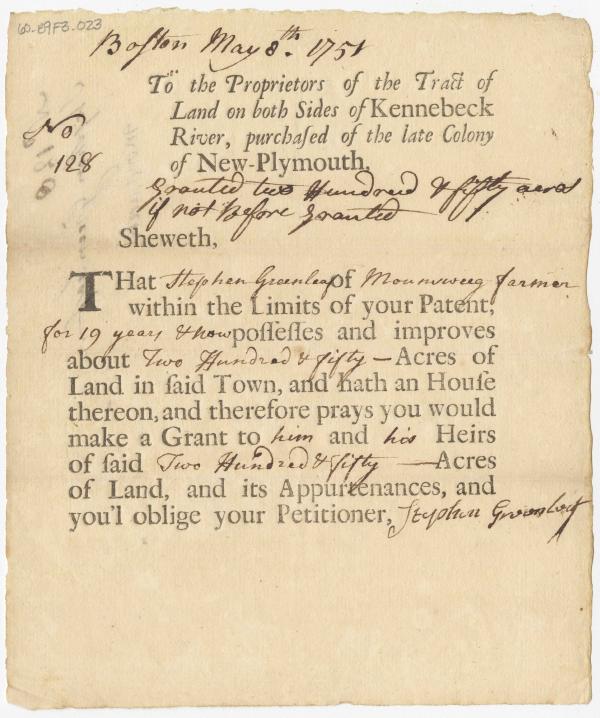 60-89F3-023
Boston May 8th. 1751
To the Proprietors of the Tract of
Land on both Sides of Kennebeck
No
River, purchaſed of the late Colony
128
of New-Plymouth.
Granted two Hundred & fifty acres
if not Before Granted
Sheweth,
THat Stephen Greenleaf of Mounsweeg farmer
within the Limits of your Patent,
for 19 years & now poſſeſſes and improves
about Two Hundred & fifty — Acres of
Land in ſaid Town, and hath an Houſe
thereon, and therefore prays you would
make a Grant to him and his Heirs
of ſaid Two Hundred & fifty — Acres
of Land, and its Appurtenances, and
you'l oblige your Petitioner, Stephen Greenleaf